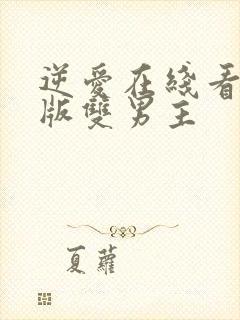 逆愛在綫看
版雙男主
夏蘿